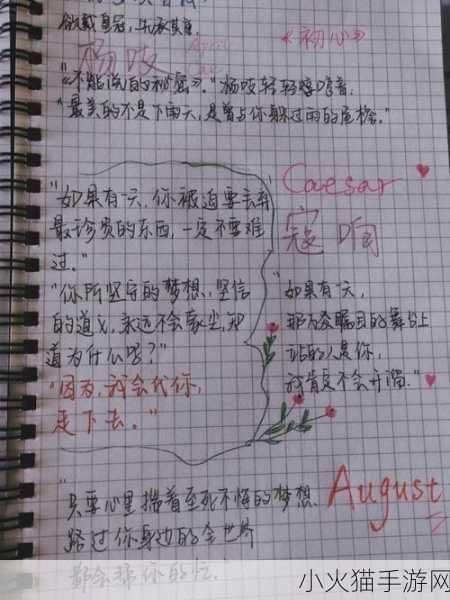 欲戴皇冠,必承其重.
《初心》
杨吱
April
"《不能说的秘密》." 杨吱轻轻嗓音,
"最美的不是下雨天,是曾与你躲过雨的屋檐."
"如果有一天,你被迫要丢弃
最珍贵的东西,一定不要难
过."
"你所坚守的梦想,坚信
的道义,永远不会蒙尘,知
道为什么呢?"
"因为,我会代你,
走下去."
Caesar
寇响
"如果有一天,
那万众瞩目的舞台上
站的人是你,
我肯定不会开溜."
"只要心里揣着至死不悔的梦想
路过你身边的全世界
都会替你的忙."
August
小火猫手游网